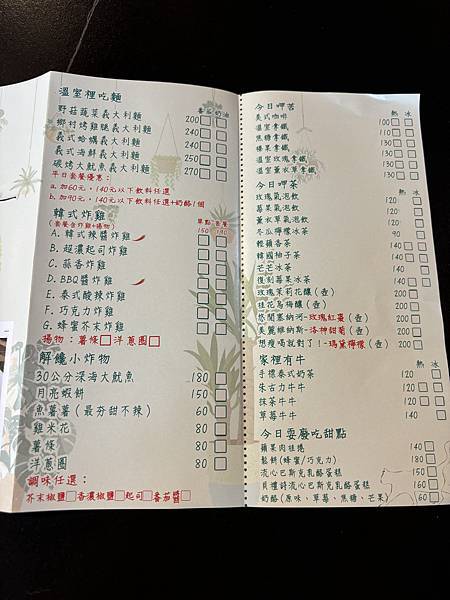 溫室裡吃麵
番茄 奶油
野菇蔬菜義大利麵 200
鄉村烤雞腿義大利麵 240
義式蛤蠣義大利麵 240
義式海鮮義大利麵 250
碳烤大魷魚義大利麵 270
平日套餐優惠：
a. 加60元，140元以下飲料任選
b. 加90元，140元以下飲料任選+奶酪1個
韓式炸雞
(套餐含炸雞+揚物)
單點 套餐
150 190
A. 韓式辣醬炸雞
B. 超濃起司炸雞
C. 蒜香炸雞
D. BBQ醬炸雞
E. 泰式酸辣炸雞
F. 巧克力炸雞
G. 蜂蜜芥末炸雞
揚物：薯條 洋蔥圈
解饞小炸物
30公分深海大魷魚 180
月亮蝦餅 150
魚薯薯（最夯甜不辣） 60
雞米花 80
薯條 80
洋蔥圈 80
調味任選：
芥末椒鹽 香濃椒鹽 起司 番茄醬
今日呷苦
熱 冰
美式咖啡 100 110
溫室拿鐵 130
焦糖拿鐵 130
榛果拿鐵 130
溫室玫瑰拿鐵 130
溫室薰衣草拿鐵 130
今日呷茶
熱 冰
玫瑰氣泡飲 120
莓果氣泡飲 120
薰衣草氣泡飲 120
冬瓜檸檬冰茶 90
輕蘋香茶 140
韓國柚子茶 140
芒芒冰茶 140
復刻莓果冰茶 140
玫瑰茉莉花釀（壺） 200
桂花烏梅釀（壺） 200
悠閒塞納河-玫瑰紅棗（壺） 200
美麗維納斯-洛神甜菊（壺） 200
想瘦喝就對了！-瑪黛檸檬（壺） 200
家裡有牛
熱 冰
手標泰式奶茶 120
朱古力牛牛 140
抹茶牛牛 140
草莓牛牛 140
今日耍廢吃甜點
蘋果肉桂捲 140
鬆餅（蜂蜜/巧克力） 180
流心巴斯克乳酪蛋糕 150
貝禮詩流心巴斯克乳酪蛋糕 160
奶酪（原味、草莓、焦糖、芒果） 60